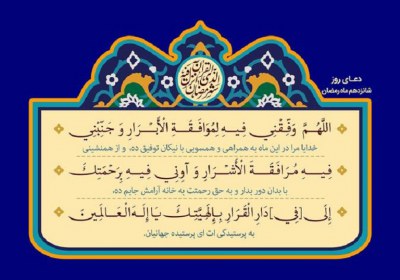 دعای روز
شانزدهم ماه رمضان
اللَّهُمَّ وَفِّقْنِي فِيهِ لِمُوَافَقَةِ الْأَبْرَارِ وَ جَنِّبْنِي
خدایا مرا در این ماه به همراهی و همسویی با نیکان توفیق ده، و از همنشینی
فِيهِ مُرَافَقَةَ الْأَشْرَارِ وَ آوِنِي فِيهِ بِرَحْمَتِكَ
با بدان دور بدار و به حق رحمتت به خانه آرامش جایم ده،
إِلَى [فِي] دَارِ الْقَرَارِ بِإِلَهِيَّتِكَ يَا إِلَهَ الْعَالَمِينَ
به پرستیدگی ات ای پرستیده جهانیان.